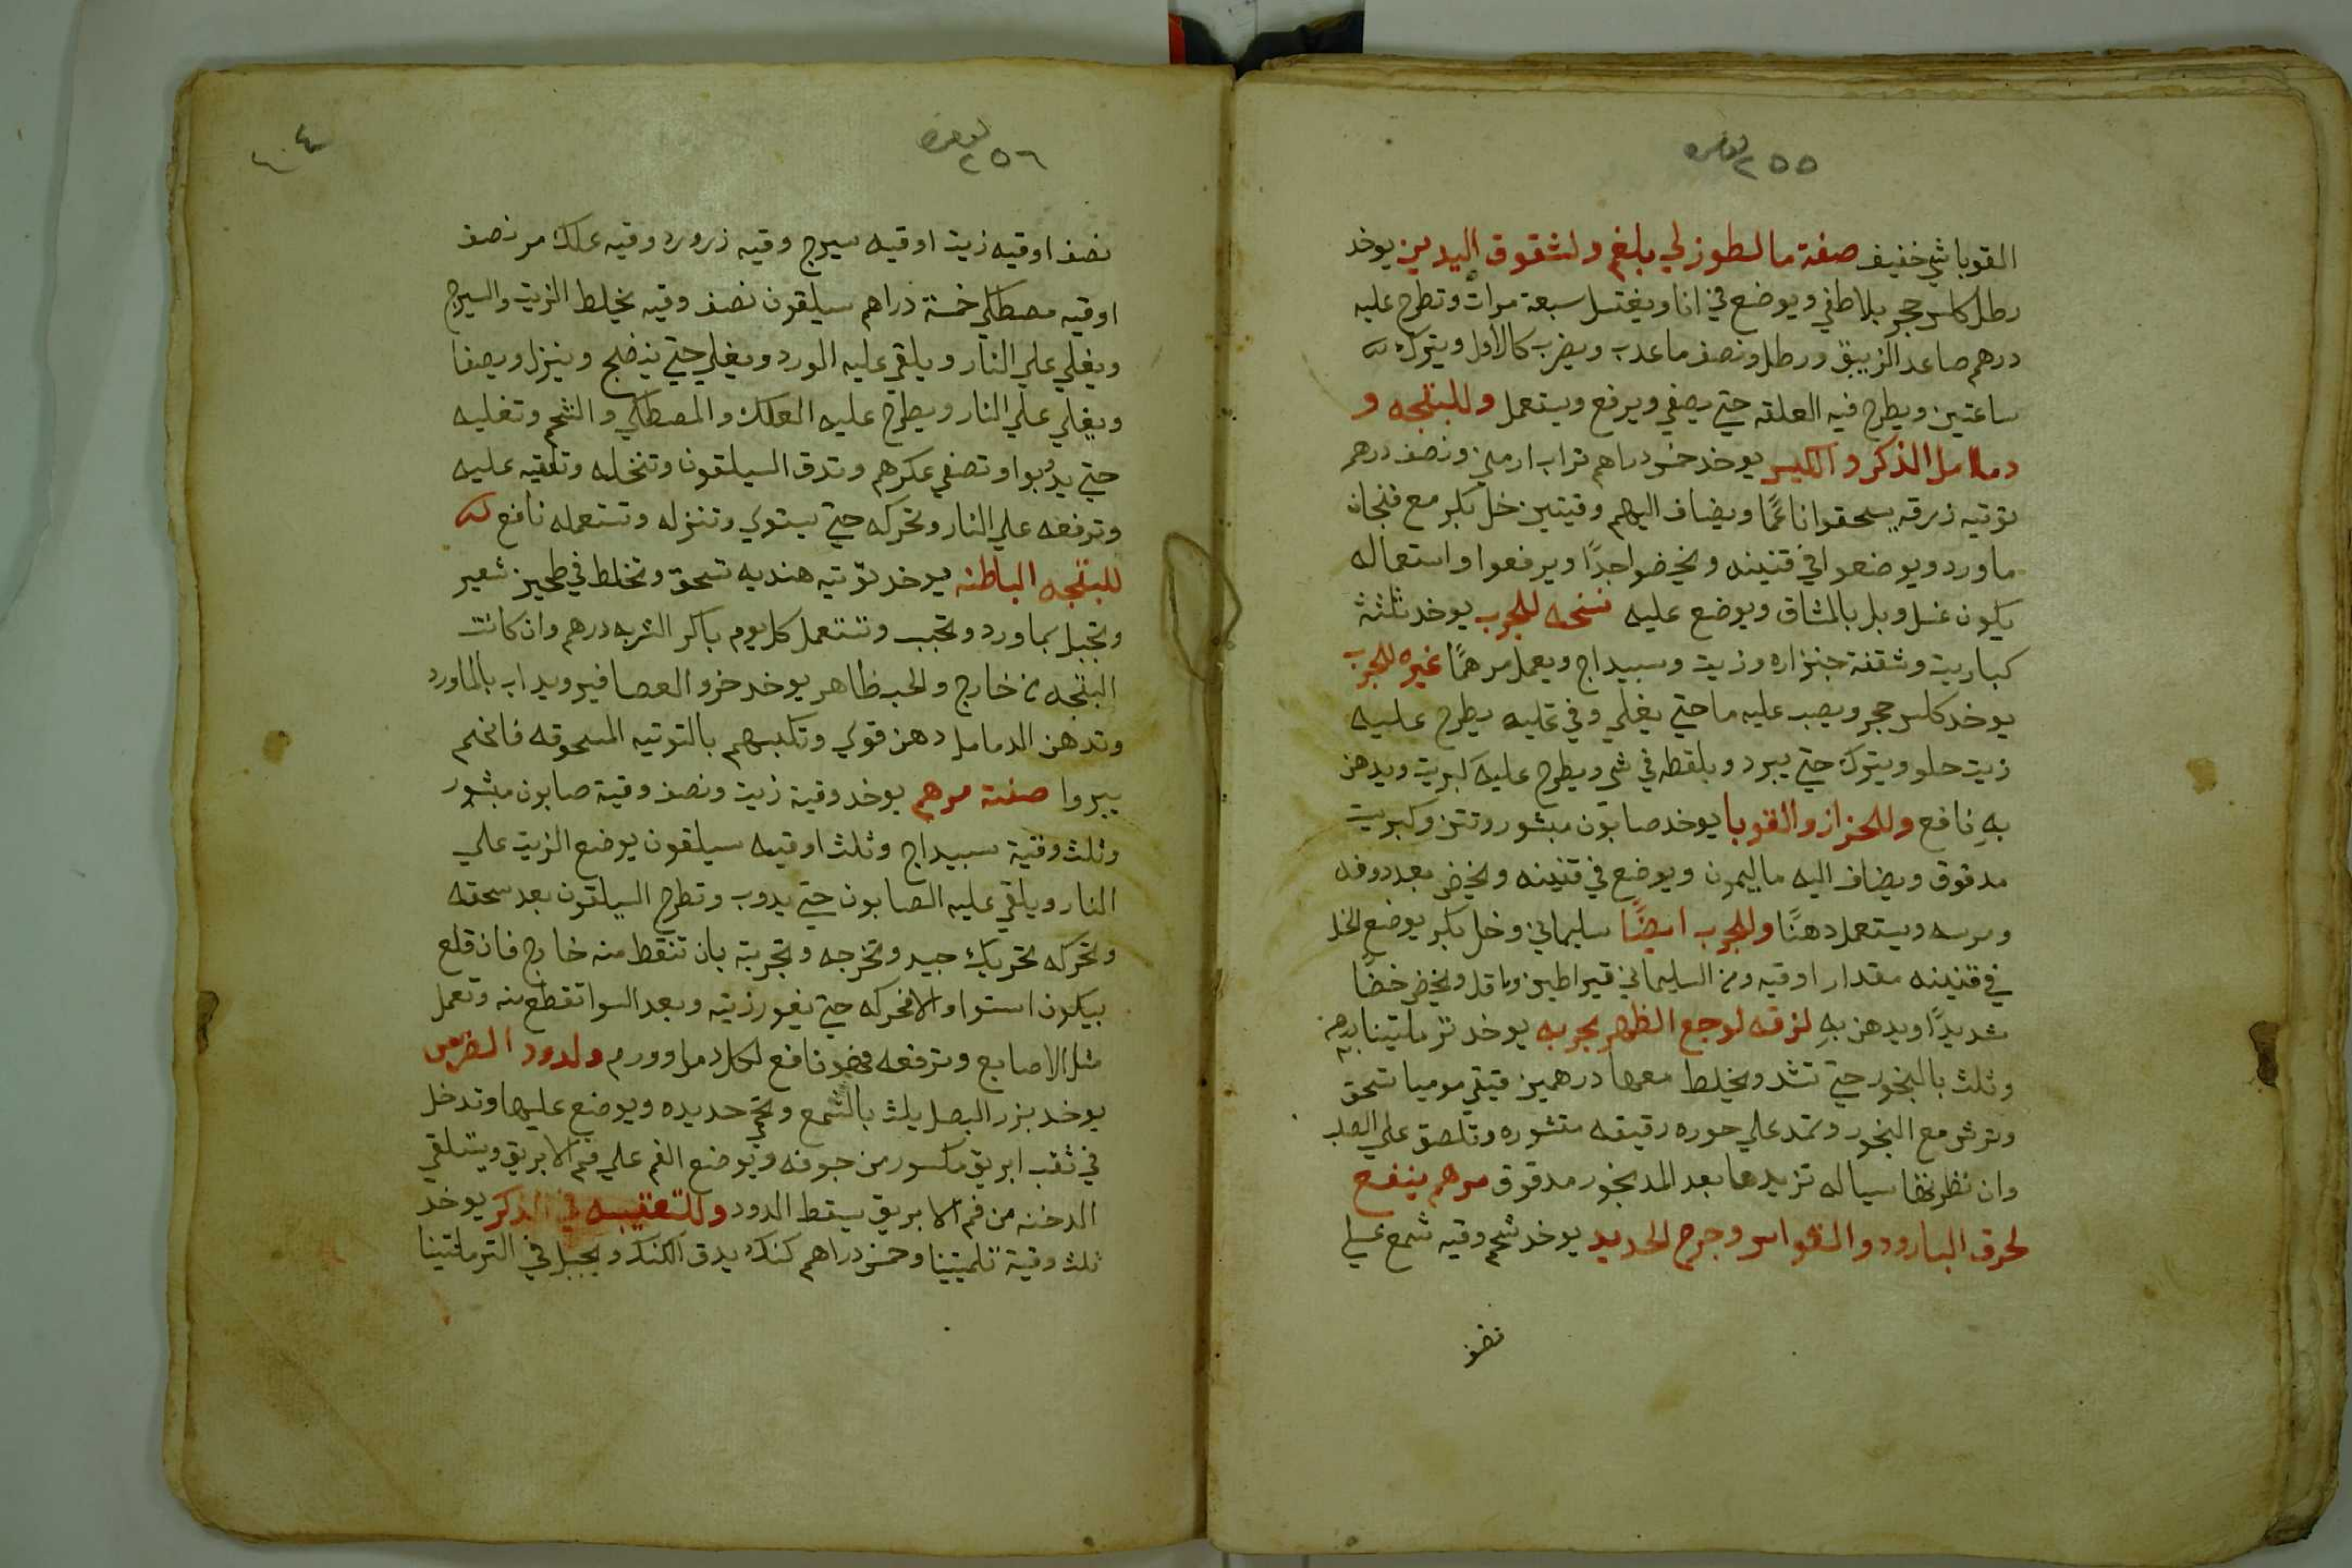 ٢٥٥
القوبا شي خفيف صفة ما لطوزلي بلغم ولشقوق اليدين يوخد
رطل كلس حجر بلا طفي ويوضع في انا ويغتسل سبعة مرات وتطرح عليه
درهم صاعد الزيبق ورطل ونصف ما عدب ويضرب كالاول ويترك
ساعتين ويطرح فيه العلقه حتي يصفي ويرفع ويستعمل وللبنتجه و
دمامل الذكر و الكيس يوخد خمس دراهم تراب ارمني ونصف درهم
توتيه زرقه يسحقوا ناعمًا ويضاف اليهم وقيتين خل بكر مع فنجان
ماورد ويوضعوا في قنينه ويخضوا جدًا ويرفعوا واستعماله
يكون غسل وبل بالمشاق ويوضع عليه نسخه للجرب يوخد ثلثة
كباريت وشقفة جنزاره وزيت وسبيداج ويعمل مرهمًا غيره للجرب
يوخد كلس حجر ويصب عليه ما حتي يغلي وفي غليه يطرح عليه
زيت حلو ويترك حتي يبرد ويلقطه في شي ويطرح عليه كبريت ويدهن
بهِ نافع وللحزاز والقوبا يوخد صابون مبشور وتتن وكبريت
مدقوق ويضاف اليه ما ليمون ويوضع في قنينه ويخض بعد دوفه
ومرسه ويستعمل دهنًا وللجرب ايضًا سليماني وخل بكر يوضع الخل
في قنينه مقدار اوقيه ومن السليماني قيراطين وماقل ويخض خضًا
شديدًا ويدهن بهِ لزقه لوجع الظهر مجربه يوخد ترمانتينا بدرهم
وثلث بالبخور حتي تشد ويخلط معها درهمين فيتي موميا تسحق
وترش مع البخور وتمد علي حوره رقيقه مقشوره وتلصق علي الصلب
وان نظرتها سياله تزيدها بعد المد بخور مدقوق مرهم ينفع
لحرق البارود والقواس وجرح الحديد يوخد شحم وقيه شمع عسلي
نصف
٢٥٦
نصف اوقيه زيت اوقيه سيرج وقيه زرورد وقيه علك مر نصف
اوقيه مصطكي خمسة دراهم سيلقون نصف وقيه يخلط الزيت والسيرج
ويغلي علي النار ويلقي عليه الورد ويغلي حتي ينضج وينزل ويصفا
ويغلي علي النار ويطرح عليه العلك والمصطكي والشحم وتغليه
حتي يدوبوا وتصفي عكرهم وتدق السيلقون وتنخله وتلقيه عليه
وترفعه علي النار وتحركه حتي يستوي وتنزله وتستعمله نافع
للبنتجه الباطنه يوخد توتيه هنديه تسحق وتخلط في طحين شعير
وتجبل بماورد وتحبب وتستعمل كل يوم باكر الشربه درهم وان كانت
البنتجه من خارج والحب ظاهر يوخد خرو العصافير ويداب بالماورد
وتدهن الدمامل دهن قوي وتكبسهم بالتوتيه المسحوقه فانهم
يبروا صفة مرهم يوخد وقية زيت ونصف وقية صابون مبشور
وثلث وقية سبيداج وثلث اوقيه سيلقون يوضع الزيت علي
النار ويلقي عليه الصابون حتي يدوب وتطرح السيلقون بعد سحقه
وتحركه تحريك جيد وتخرجه وتجربته بان تنقط منه خارج فان قلع
بيكون استوا والا فحركه حتي يغور زيته وبعد السوا تقطع منه وتعمل
مثل الاصابع وترفعه فهو نافع لكل دمل وورم ولدود الضرس
يوخد بزر البصل يلت بالشمع وتحمي حديده ويوضع عليها وتدخل
في ثقب ابريق مكسور من جوفه ويوضع الفم علي فم الابريق ويتلقي
الدخنه من فم الابريق يسقط الدود وللتعقيبه في الذكر يوخد
ثلث وقية تلمتينا وخمس دراهم كنك يدق الكنك ويجبل في الترمانتينا